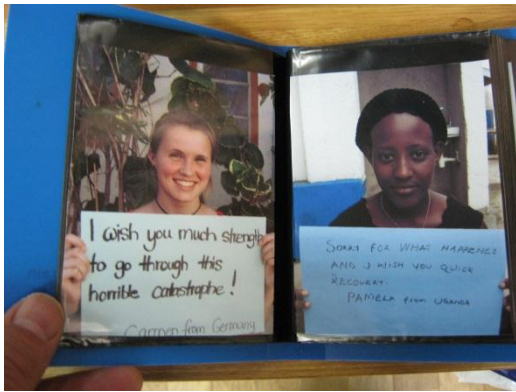 I wish you much strength
to go through this
horrible catastrophe!
Carmen from Germany
SORRY FOR WHAT HAPPENED
AND I WISH YOU QUICK
RECOVERY.
PAMELA from UGANDA